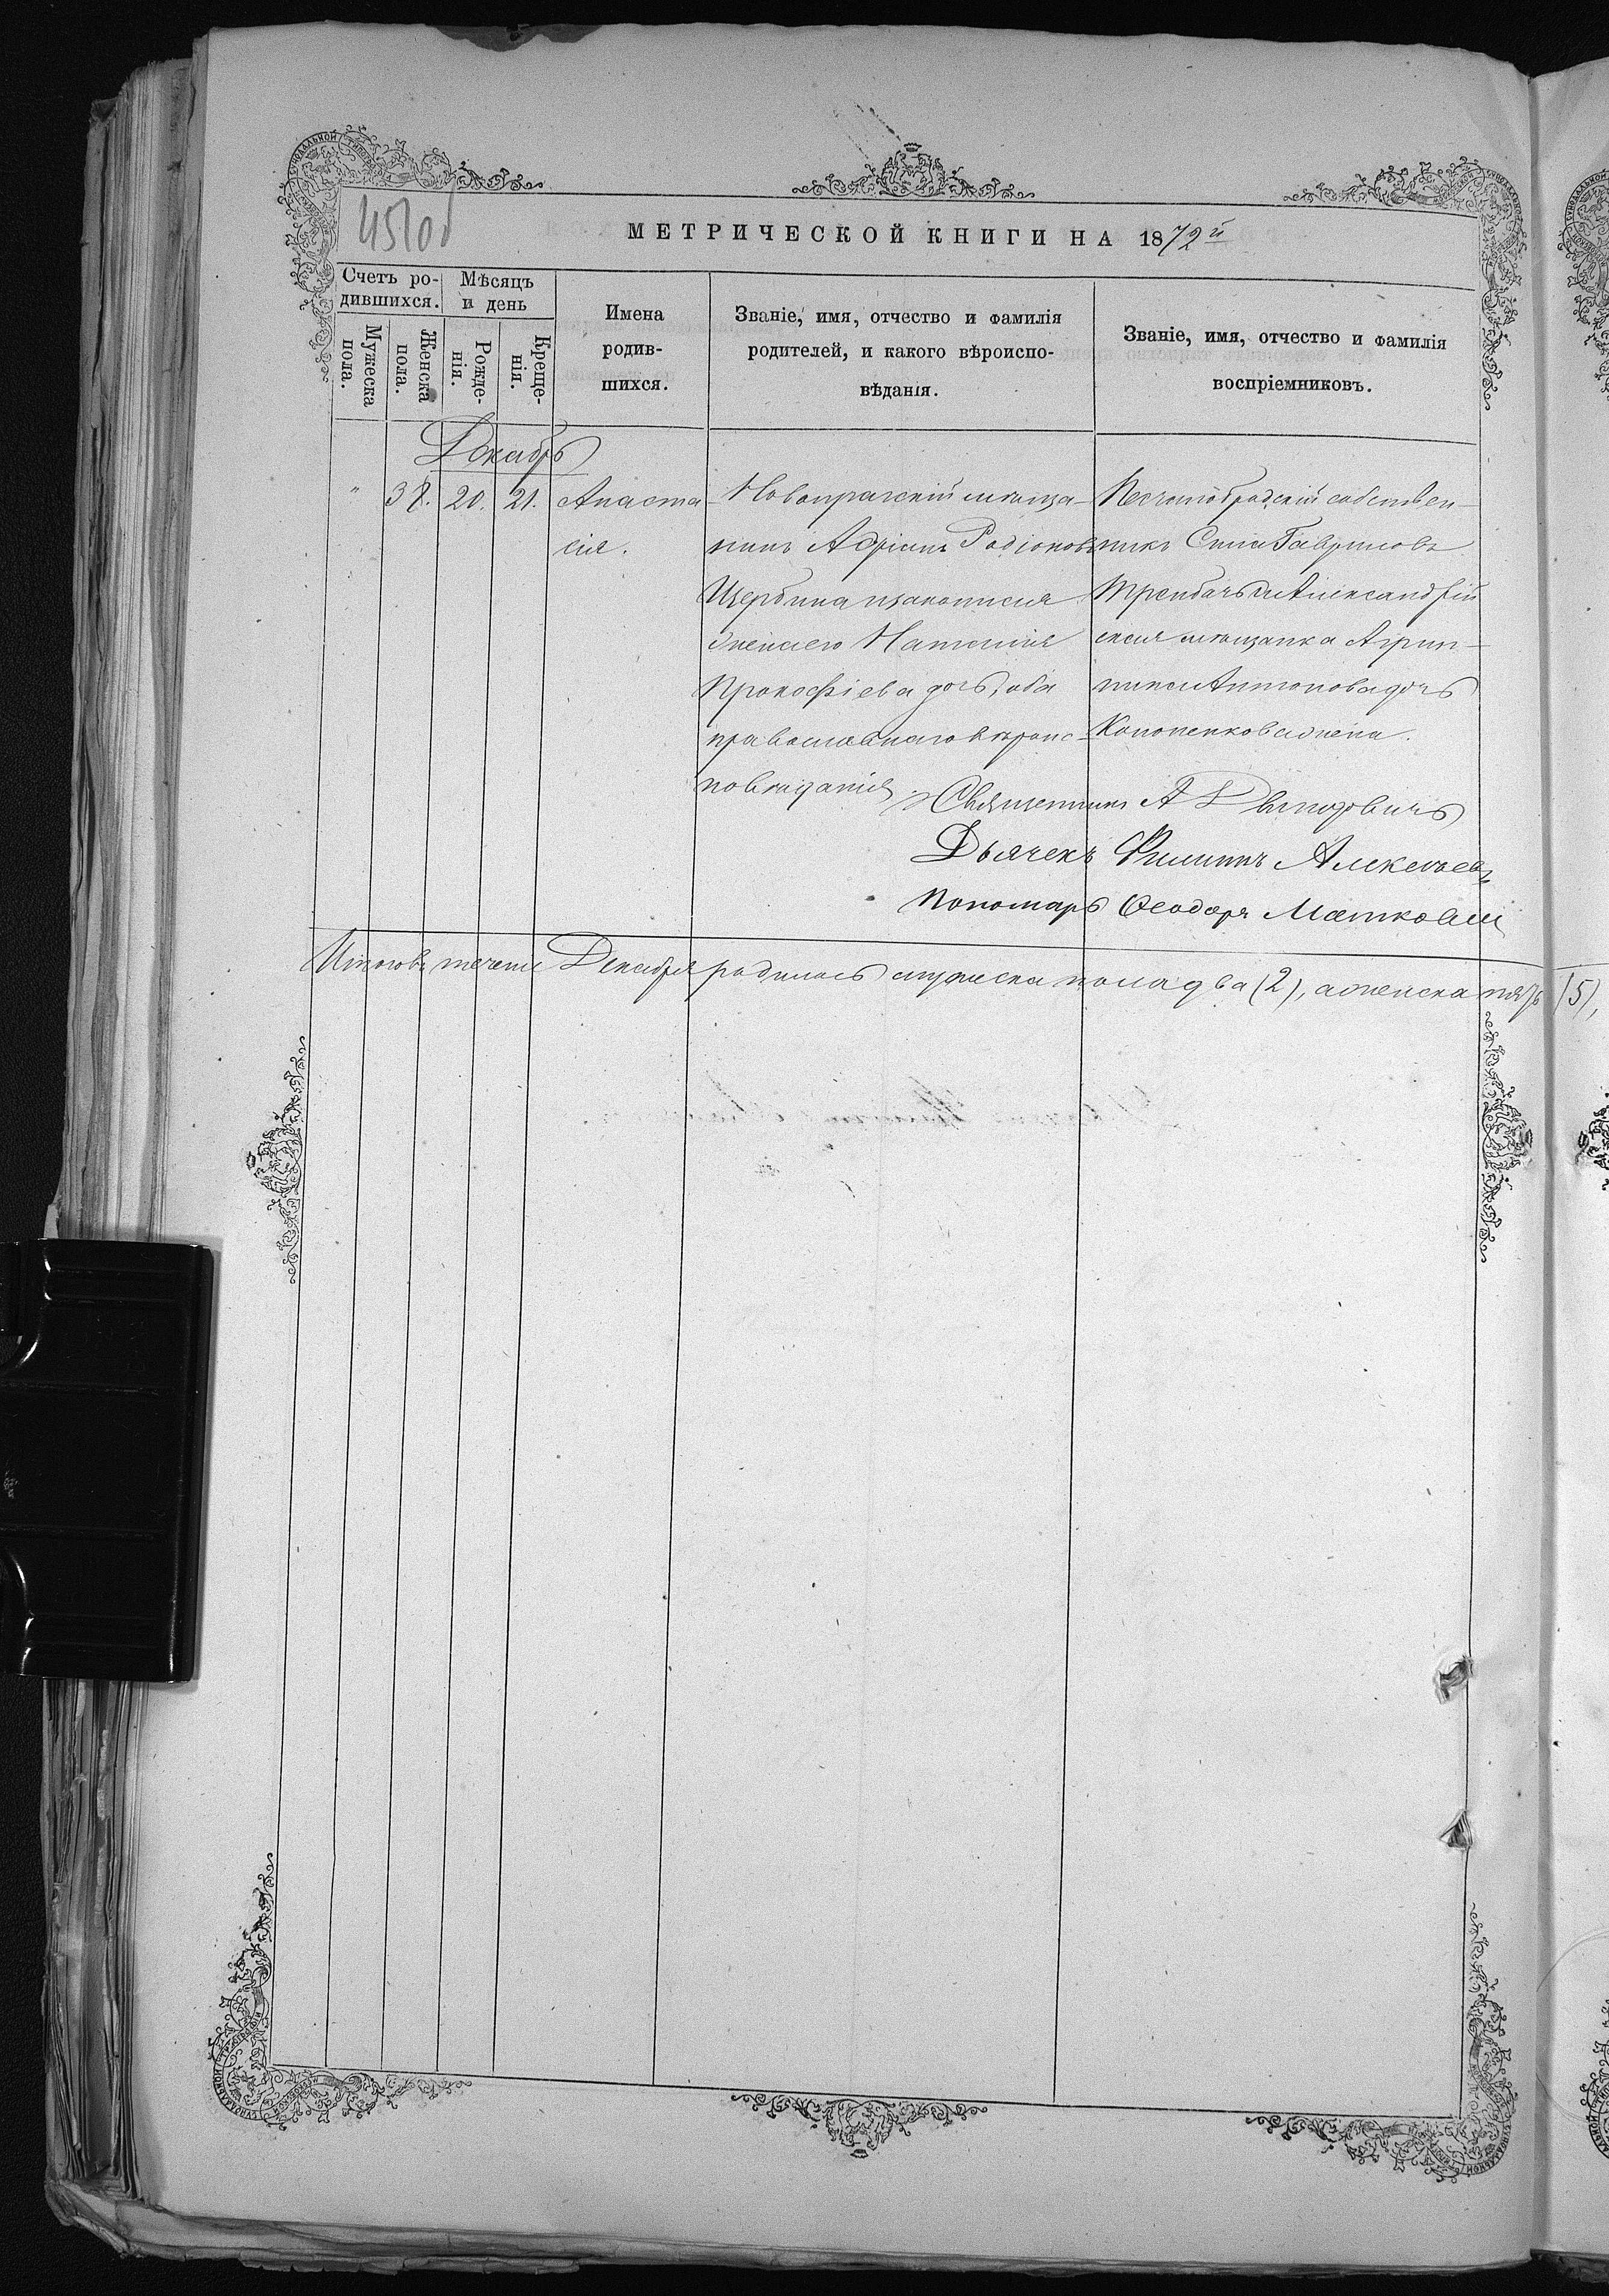 451об
МЕТРИЧЕСКОЙ КНИГИ НА 1872й
Счетъ ро-
дившихся.
Мѣсяцъ
и день
Мужеска
пола.
Женска
пола.
Рожде-
нія.
Креще-
нія.
Имена
родив-
шихся.
Званіе, имя, отчество и фамилія
родителей, и какого вѣроиспо-
вѣданія.
Званіе, имя, отчество и фамилія
воспріемниковъ.
Декабрь
" 38. 20. 21.
Анаста-
сія.
Новопражскій мѣща-
нинъ Адріанъ Родіоновъ
Щербина изаконная
женаего Наталія
Прокофіева дочь, оба
православнаго вѣроис-
повѣданія.
собствен-
никъ Сила Гавриловъ
Александрій
ская мѣщанка Агрип-
пина Антонова дочь
Кононенкова жена.
Священникъ А
Дьячекъ Филиппъ Алексѣевъ
Пономарь Ѳеодоръ
Итогов теченіе Декабря родилось мужеска пола два (2), аженска пять (5),